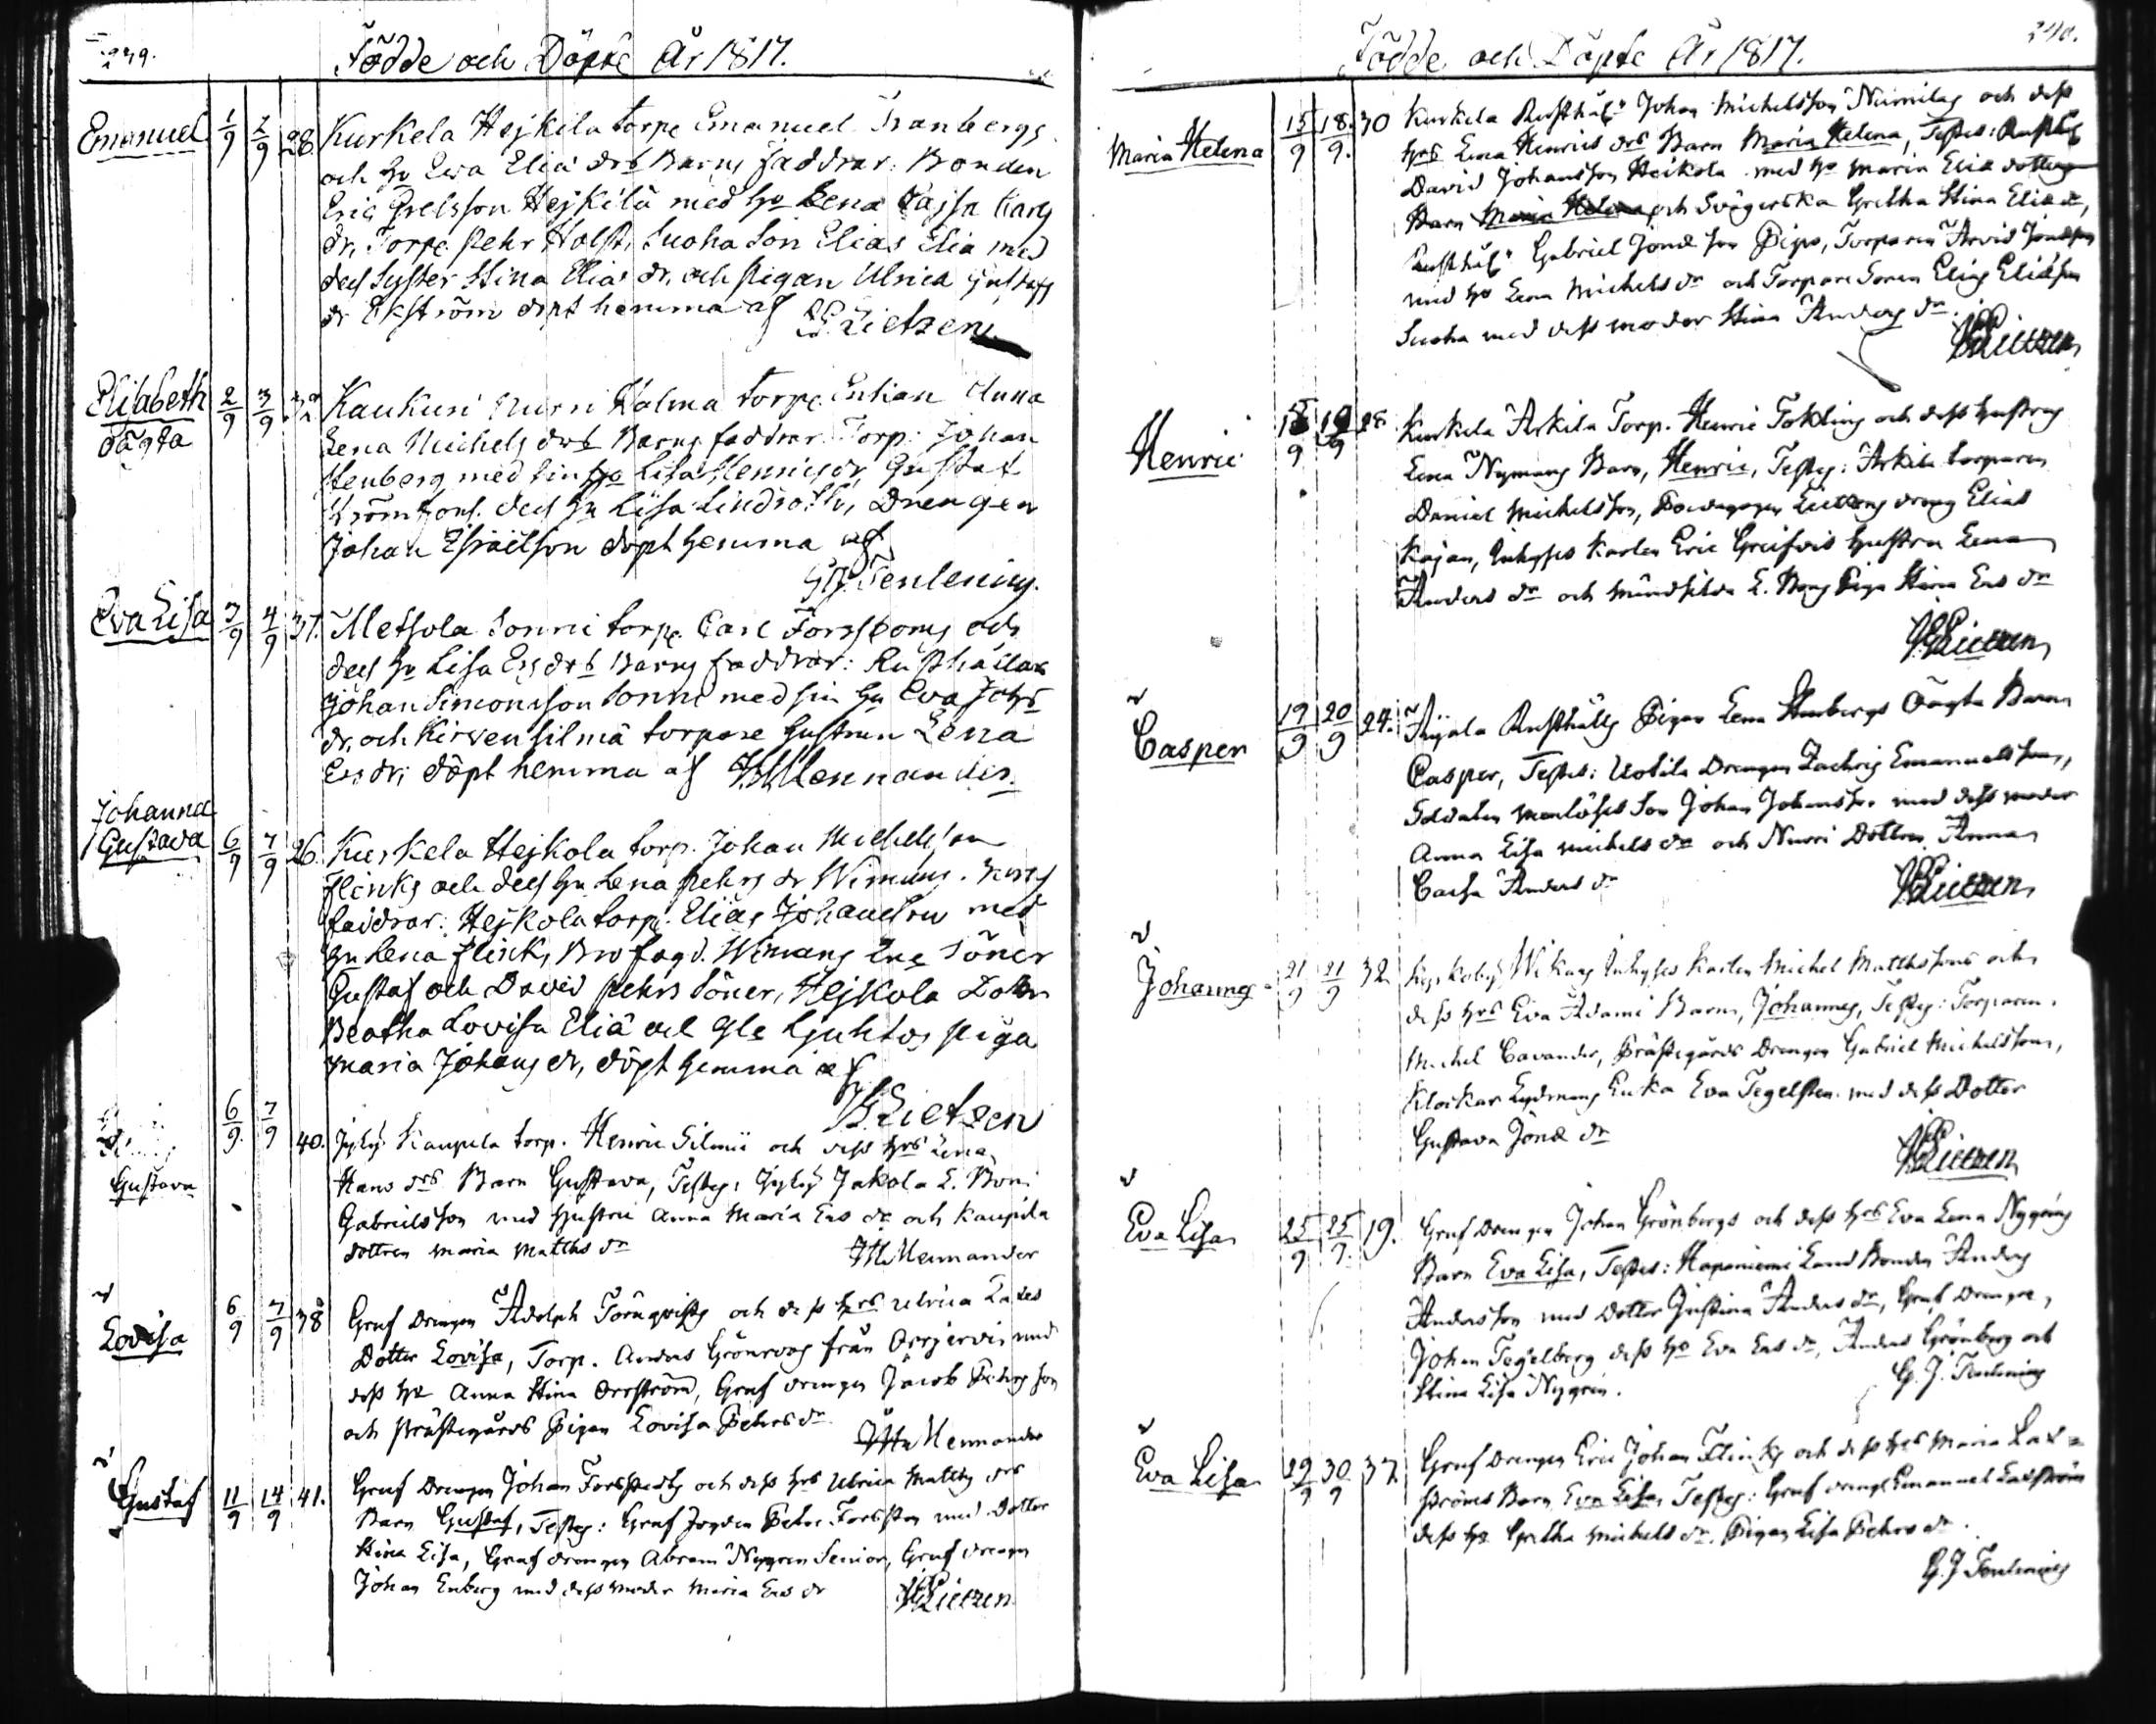 239.
Födde och Döpte År 1817.
Emanuel 1/9 2/9 28. Kurkela Hejkila torpe Emanuel Tranbergs
och hu Ewa Eliä drs Barns faddrar: Bonden
Eric Grelsson Hejkilä med hu Lena Cajsa Carls
dr, Torpe Pehr Holst, Suoha Son Elias Eliä med
dess Syster Stina Eliä dr, och Pigan Ulrica Gustafs
dr Ekström döpt hemma af
Lietzen
Elisabeth 2/9 3/9 Kaukuri Nurri Kalma torpe Enkan Anna
oägta Lena Michels drs Barns faddrar Torp: Johan
Stenberg med sin hu Lisa Henrics dr, Gustaf
Strömfors dess hu Lisa Lindroth, Drengen
Johan Esraelson döpt hemma af
G. J. Tenlenius.
Eva Lisa 3/9 4/9 37. Metsola Sonni torpe Carl Forssboms och
dess hu Lisa Ers drs Barns faddrar: Rusthållar
Johan Simonsson Sonni med sin hu Eva Johs
dr, och Kirvensilmä torpare hustrun Lena
Ers dr, döpt hemma af J. H. Mennander.
Johanna
Gustava 6/9 7/9 26. Kurkela Hejkola torp. Johan Michelsson
Flinks och dess hu Lena Pehrs dr Wimans Barns
faddrar: Hejkola torp: Elias Johansson med
hu Lena Flink, Brofogd. Wimans Söner
Gustaf och David Pehrs Söner, Hejkola Dottr
Beatha Lovisa Eliä och piga
Maria Johans dr, döpt hemma af
Lietzen
Gustava 6/9. 7/9 40. Jyly Kaupila torp. Henric Silmii och dess hrs Lena
Hans drs Barn Gustava, Testes: Jyly Jakola L. Boni
Gabrielsson med Hustru Anna Maria Ers dr och Kaupila
dottren Maria Matths dr J H Mennander
Lovisa 6/9 7/9 38 Gruf Drengen Adolph Törnqvists och dess hrs Ulrica
Dotter Lovisa, Torp. Anders Grönroos från Orrjervi med
dess hu Anna Stina Orrström, Gruf drengen Jacob Pehrsson
och Prästegårds Pigan Lovisa Pehrs dr
J H Mennander
Gustaf 11/9 14/9 41. Gruf Drengen Johan Forsstedts och dess hrs Ulrica Matths drs
Barn Gustaf, Testes: Gruf Fogden Petter Forssten med Dotter
Stina Lisa, Gruf drengen Abram Nygren Senior, Gruf drengen
Johan Enberg med dess moder Maria Ers dr
Lietzen
240.
Födde och Döpte År 1817.
Maria Helena 15/9 18/9. 30 Kurkela Rusth. Johan Michelsson Numilas och dess
hrs Lena Henrics drs Barn Maria Helena, Testes: Rusth.
David Johansson Heikola med hu Maria Eliæ dotter
Barn Maria Helena och Svägerska Gretha Stina Eliæ dr,
Rusthåll. Gabriel Jonæ son Pips, Torparen Arvid Jonæson
med hu Lena Michels dr och Torpare Sonen Elias Eliæson
Suoha med dess moder Stina Anders dr.
Lietzen
Henric 19/9 28 Kurkela Arkila Torp. Henric Tokling och dess hustrus
Lena Nymans Barn, Henric, Testes: Arkila torparen
Daniel Michelsson, Lietzens dreng Elias
Kajan, Inhyses Karlen Eric Greifvis hustru Lena
Anders dr och L. Bons Piga Stina Ers dr
Lietzen
Casper 19/9 20/9 24. Äijälä Rusthålls Pigan Lena Stenbergs Oägta Barn
Casper, Testes: Uotila Drengen Zachris Emanuelsson,
Soldaten Manlös Son Johan Johansson med dess moder
Anna Lisa Michels dr och Nurri Dottren Anna
Caisa Anders dr
Lietzen
Johannes 21/9 21/9 32 Kyrkoby Wikars Inhyses Karlen Michel Matthssons och
dess hrs Eva Adami Barn, Johannes, Testes: Torparen
Michel Cavander, Prästegårds Drengen Gabriel Michelsson,
Klockar Lydmans Enka Eva Tegelsten med dess Dotter
Gustava Jonæ dr
Lietzen
Eva Lisa 25/9 25/9. 19. Gruf Drengen Johan Grönbergs och dess hrs Eva Lena Nygrens
Barn Eva Lisa, Testes: Haponiemi Land Bonden Anders
Andersson med Dotter Justina Anders dr, Gruf Drengen
Johan Tegelberg dess hu Eva Ers dr, Anders Grönberg och
Stina Lisa Nygren.
G. J. Tenlenius
Eva Lisa 29/9 30/9 37 Gruf Drengen Eric Johan Flinks och dess hrs Maria Lax=
ströms Barn Eva Lisa, Testes: Gruf drengen Emanuel Laxström
dess hu Gretha Michels dr. Pigan Lisa Pehrs dr.
G. J Tenlenius